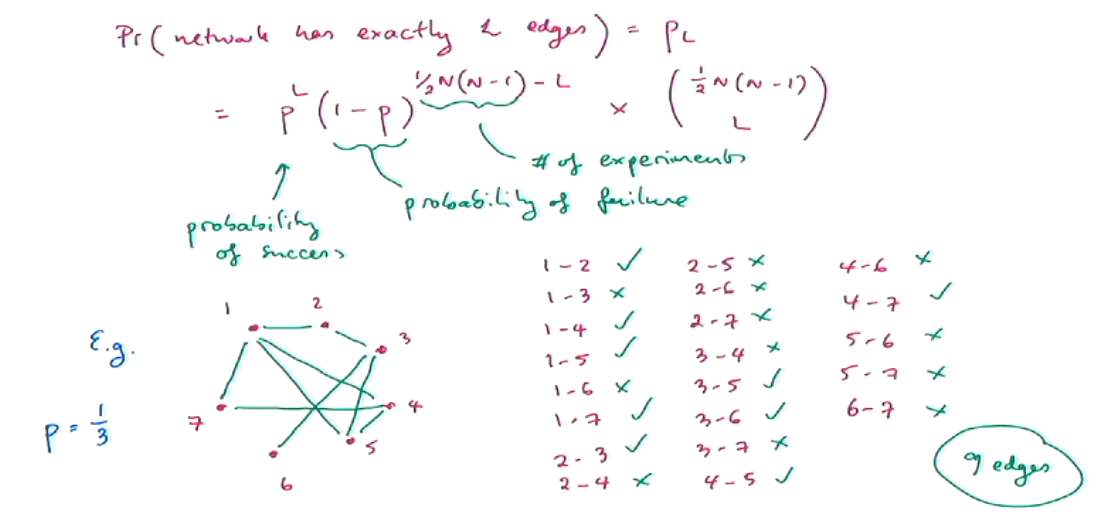 Pr(network has exactly L edges) = pL
= p^L (1-p)^{½N(N-1)-L} × (½N(N-1) L)
# of experiments
probability of failure
probability
of success
E.g.
p = 1/3
1
2
3
4
5
6
7
1-2 ✓
1-3 ×
1-4 ✓
1-5 ✓
1-6 ×
1-7 ✓
2-3 ✓
2-4 ×
2-5 ×
2-6 ×
2-7 ×
3-4 ×
3-5 ✓
3-6 ✓
3-7 ×
4-5 ✓
4-6 ×
4-7 ✓
5-6 ×
5-7 ×
6-7 ×
9 edges